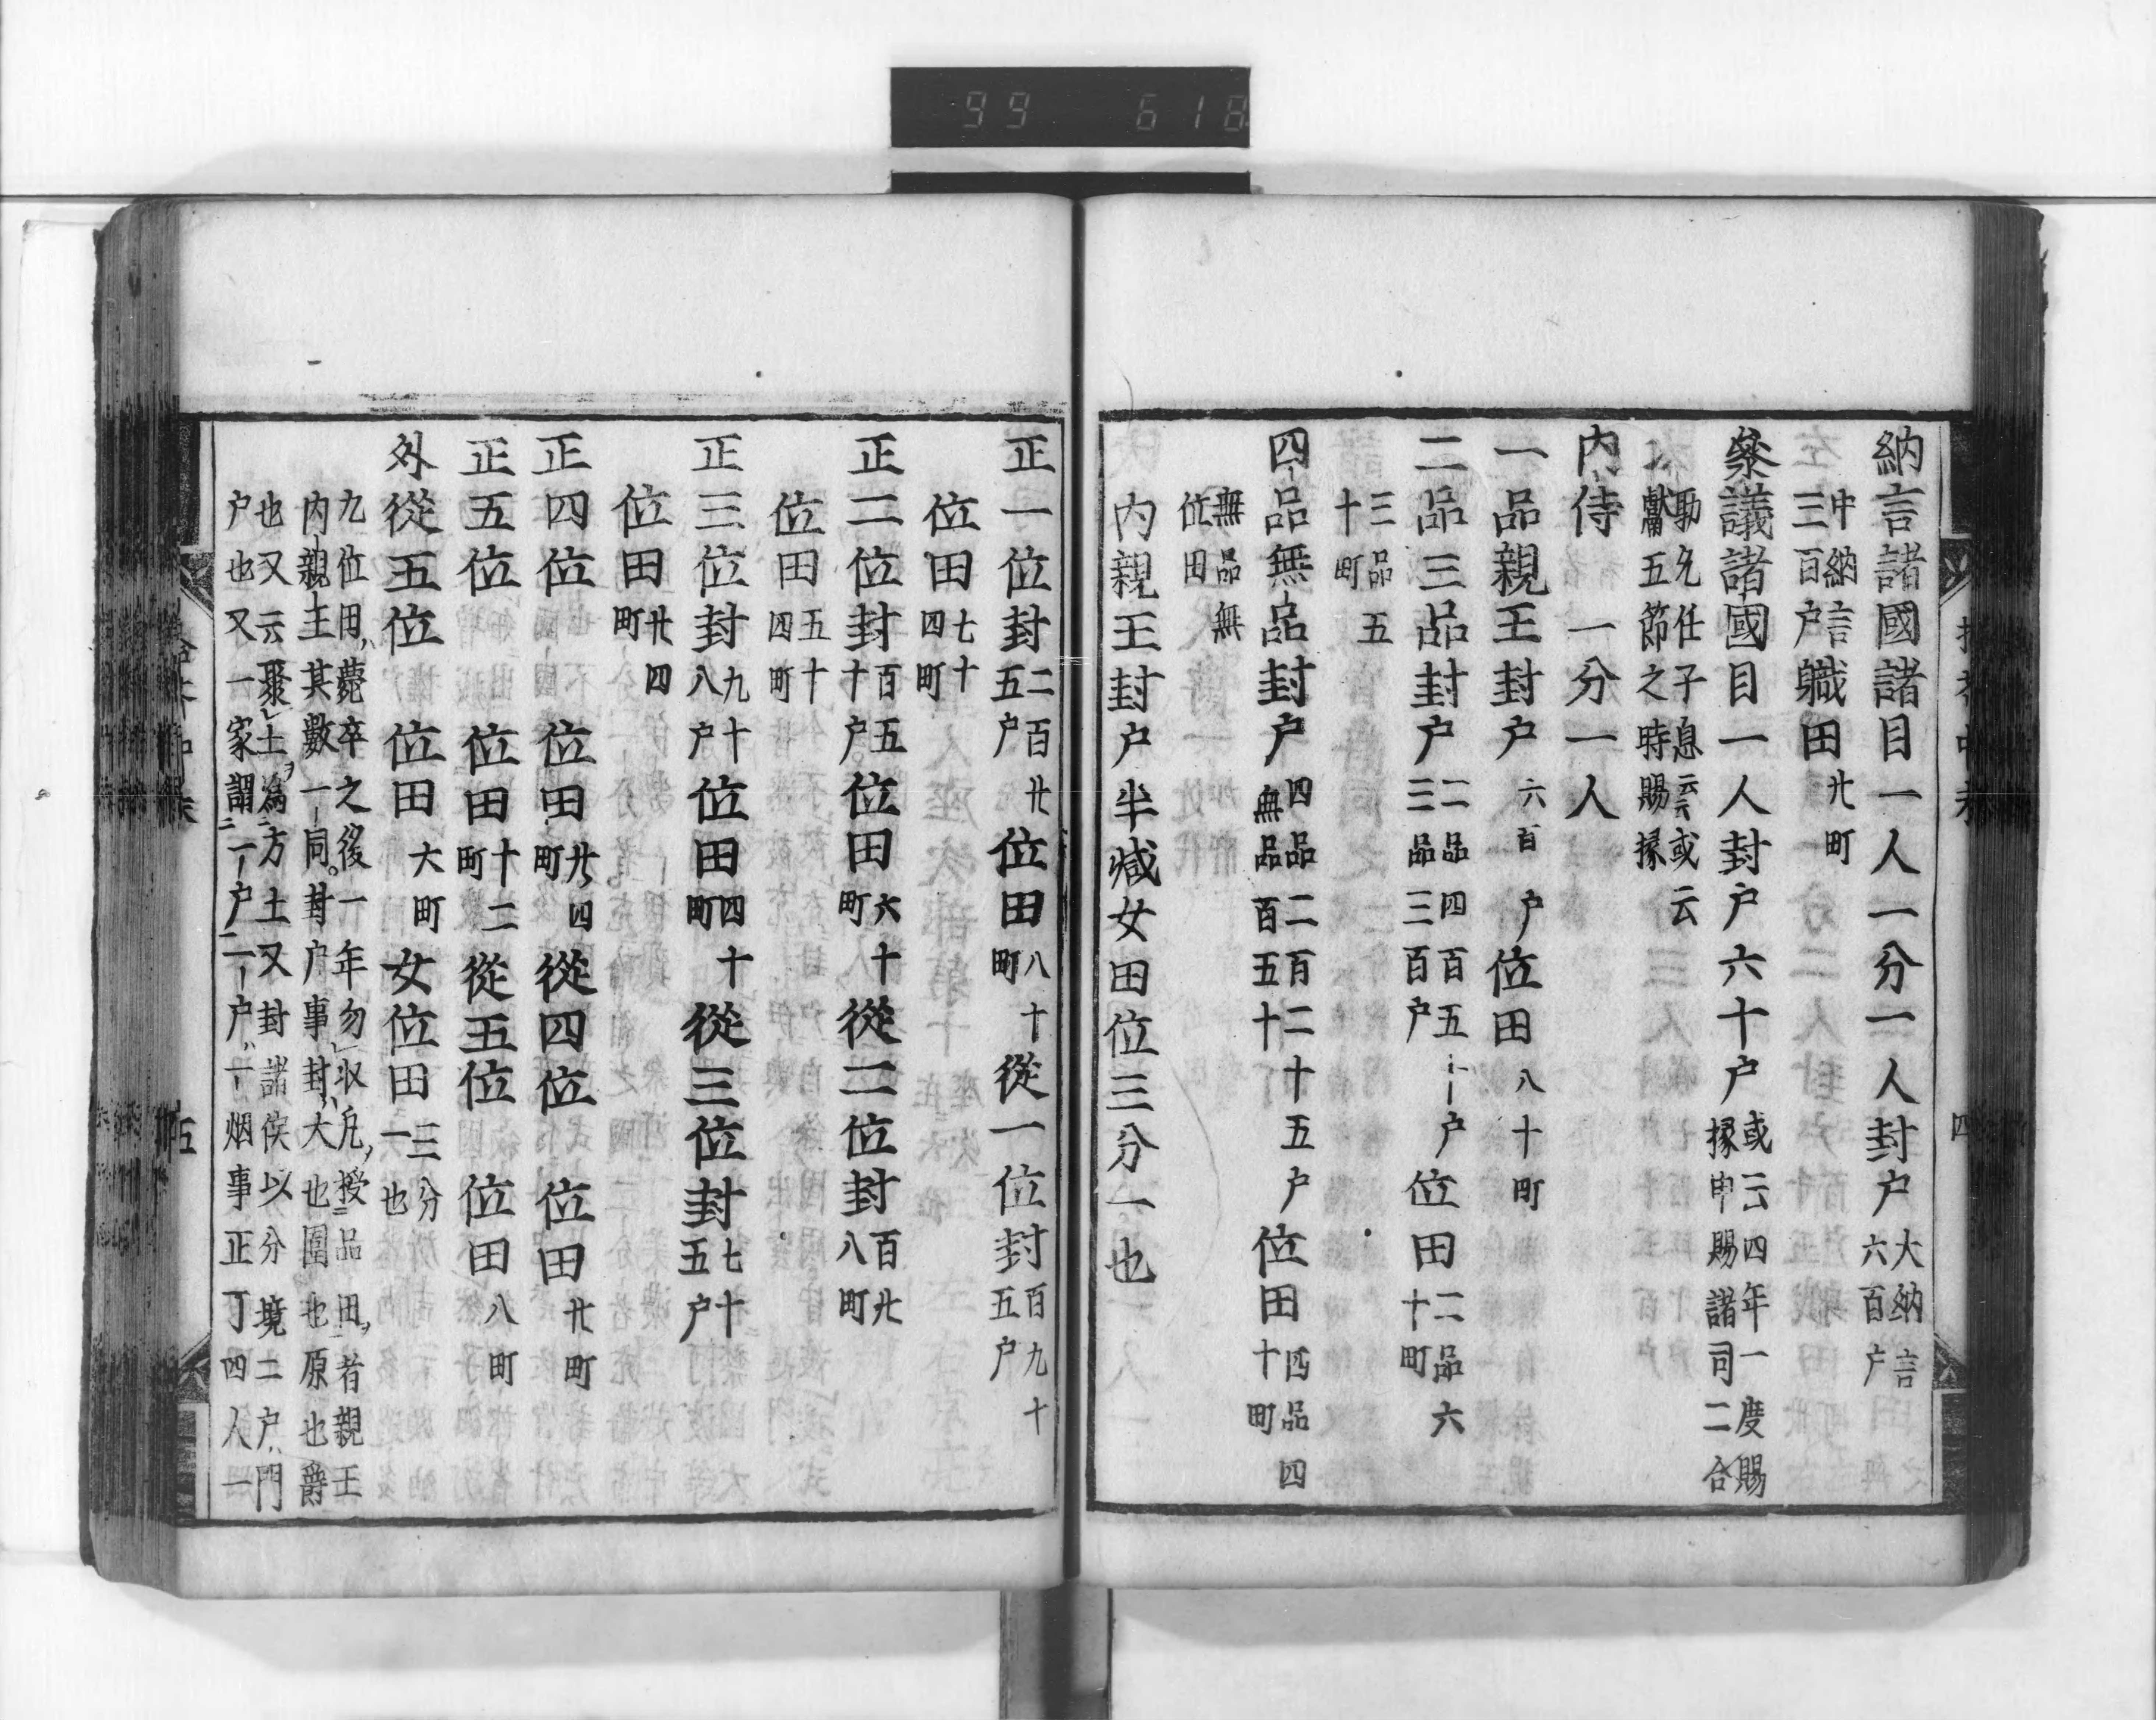 納言諸國諸目一人一分一人封戸大納言六百戸
中納言三百戸職田廿町
叅議諸國目一人封戸六十戸或云四年一度賜掾申賜諸司二合
勤允任子息云云或云獻五節之時賜掾
内侍一分一人
一品親王封戸六百戸位田八十町
二品三品封戸二品四百五十戸三品三百戸位田二品六十町
三品五十町
四品無品封戸四品二百二十五戸無品百五十位田四品四十町
無品無位田
内親王封戸半減女田位三分一也
正一位封二百廿五戸位田八十町從一位封百九十五戸
位田七十四町
正二位封百五十戸位田六十町從二位封百廿八町
位田五十四町
正三位封九十八戸位田四十町從三位封七十五戸
位田廿四町
正四位位田廿四町從四位位田廿町
正五位位田十二町從五位位田八町
外從五位位田六町女位田三分一也
九位田薨卒之後一年勿収凡授品田者親王
内親王其數一同封戸事封大也圍也原也爵
也又云聚土為方土又封諸侯以分境二戸門
戸也又一家謂一戸二戸一烟事正丁四人一
四
五
99 618